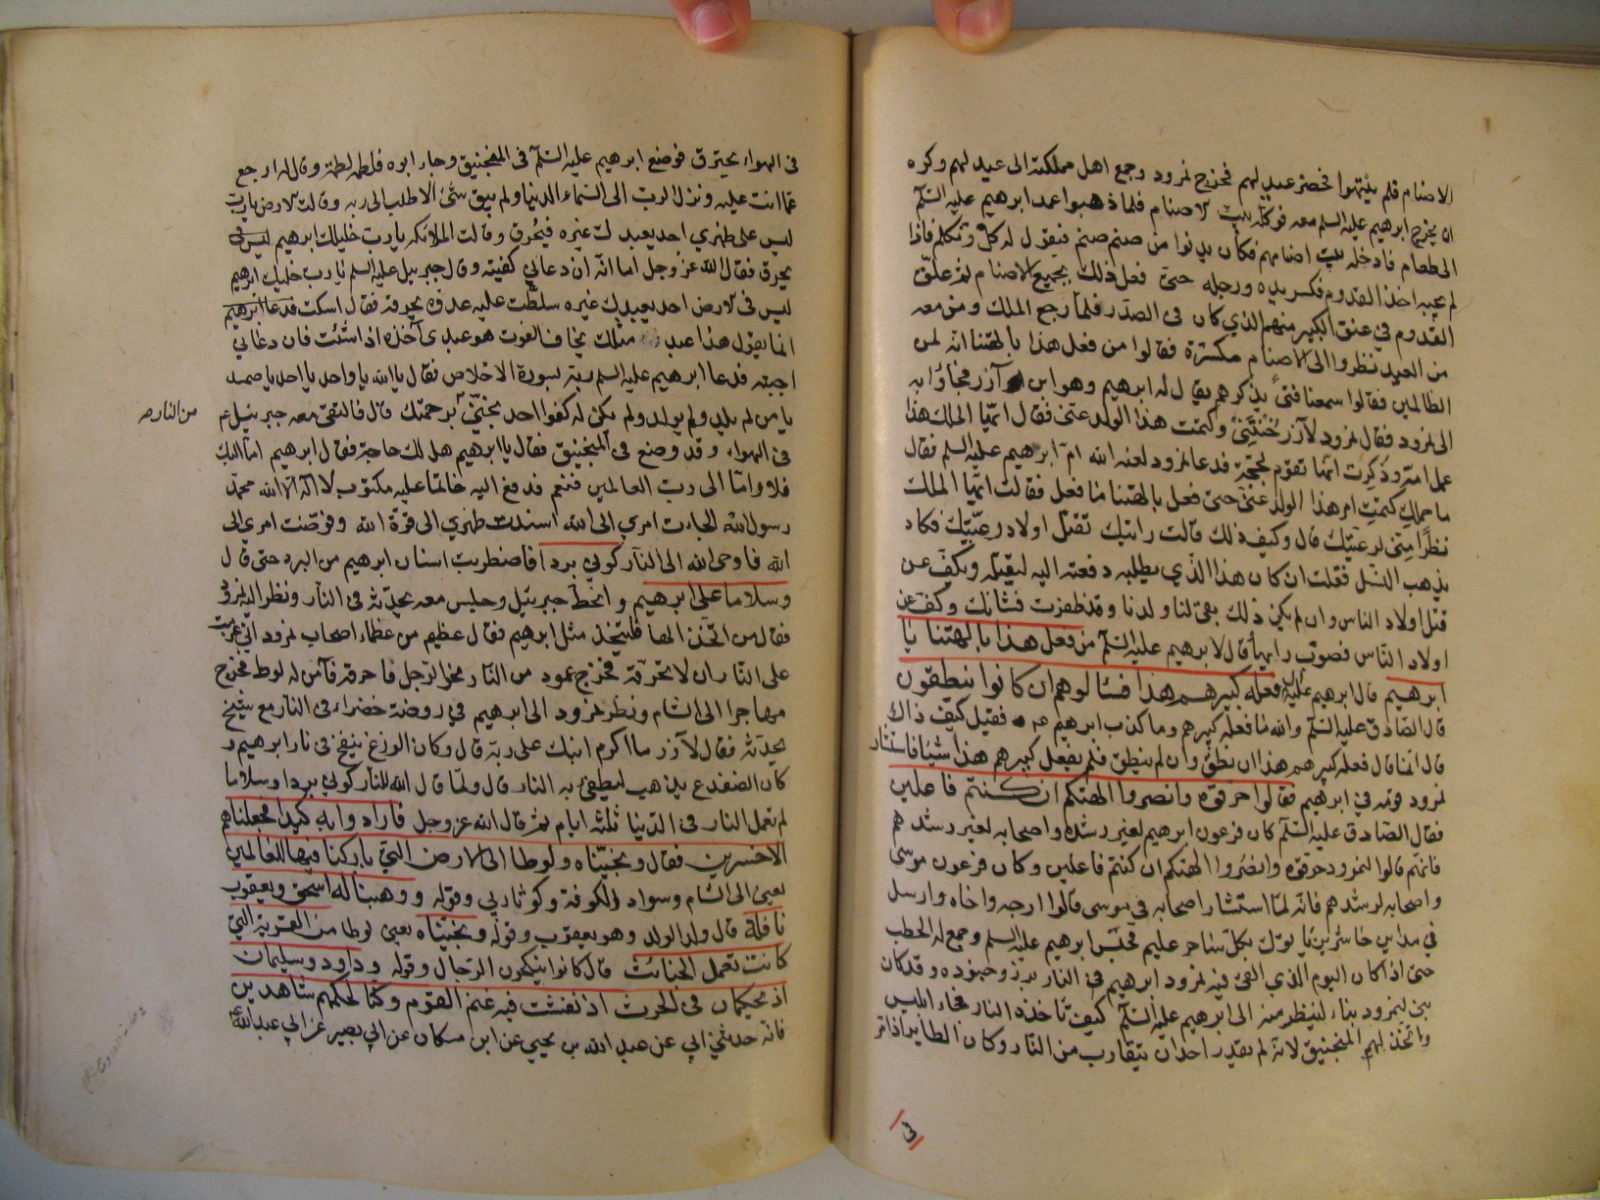 الاصنام فلم ينتهوا فحضر عيد لهم فخرج نمرود وجمع اهل مملكته الى عيد لهم وكره
ان يخرج ابرهيم عليه السلم معه فوكله ببيت الاصنام فلما ذهبوا عمد ابرهيم عليه السلم
الى طعام فادخله بيت اصنامهم فكان يدنوا من صنم صنم فيقول له كل وتكلم فاذا
لم يجبه اخذ القدوم فكسر يده ورجله حتى فعل ذلك بجميع الاصنام ثم علق
القدوم في عنق الكبير منهم الذي كان في الصدر فلما رجع الملك ومن معه
من العيد نظروا الى الاصنام مكسرة فقالوا من فعل هذا بالهتنا انه لمن
الظالمين فقالوا سمعنا فتى يذكرهم يقال له ابرهيم وهو ابن آزر فجاؤا به
الى نمرود فقال نمرود لآزر خنتني وكتمت هذا الولد عني فقال ايها الملك هذا
عمل امه وذكرت انها تقوم بحجته فدعا نمرود لعنه الله ام ابرهيم عليه السلم فقال
ما حملك كتمت امر هذا الولد عني حتى فعل بالهتنا ما فعل فقالت ايها الملك
نظرا مني لرعيتك قال وكيف ذلك قالت رايتك تقتل اولاد رعيتك فكاد
يذهب النسل فقلت ان كان هذا الذي يطلبه دفعته اليه ليقتله ويكف عن
قتل اولاد الناس وان لم يكن ذلك بقي لنا ولدنا وقد ظفرت فشانك وكف عن
اولاد الناس فصوب رايها قال لابرهيم عليه السلم من فعل هذا بالهتنا يا
ابرهيم قال ابرهيم عليه فعله كبيرهم هذا فسالوهم ان كانوا ينطقون
قال الصادق عليه السلم والله ما فعله كبيرهم وما كذب ابرهيم فقيل كيف ذاك
قال انما قال فعله كبيرهم هذا ان نطق وان لم ينطق فلم يفعل كبيرهم هذا شيئا فاستشار
نمرود قومه في ابرهيم فقالوا حرقوه وانصروا الهتكم ان كنتم فاعلين
فقال الصادق عليه السلم كان فرعون ابرهيم لغير رشده واصحابه لغير رشدهم
فانهم قالوا لنمرود حرقوه وانصروا الهتكم ان كنتم فاعلين وكان فرعون موسى
واصحابه لرشدهم فانه لما استشار اصحابه في موسى قالوا ارجه واخاه وارسل
في مداين حاشرين ياتوك بكل ساحر عليم فحبس ابرهيم عليه السلم وجمع له الحطب
حتى اذا كان اليوم الذي القى فيه نمرود ابرهيم في النار برز وجنوده وقد كان
بني لنمرود بناء لينظر منه الى ابرهيم عليه السلم كيف تاخذه النار فجاء ابليس
واتخذ لهم المنجنيق لانه لم يقدر احد ان يتقارب من النار وكان الطاير اذا مر
في الهواء يحترق فوضع ابرهيم عليه السلم في المنجنيق وجاء ابوه فلطمه لطمة وقال له ارجع
عما انت عليه ونزل الرب الى السماء الدنيا ولم يبق شئ الا طلب الى ربه وقالت الارض يا رب
ليس على ظهري احد يعبدك غيره فيحرق وقالت الملائكه يا رب خليلك ابرهيم
يحرق فقال الله عز وجل اما انه ان دعاني كفيته وقال جبرئيل عليه السلم يا رب خليلك ابرهيم
ليس في الارض احد يعبدك غيره سلطت عليه عدوه يحرقه فقال اسكت فدعا ابرهيم
انما يقول هذا عبد مثلك يخاف الفوت هو عبدي آخذه اذا شئت فان دعاني
اجبته فدعا ابرهيم عليه السلم ربه بسورة الاخلاص فقال يا الله يا واحد يا احد يا صمد
يا من لم يلد ولم يولد ولم يكن له كفوا احد نجني برحمتك قال فالتقى معه جبرئيل عم
من النار صح
في الهواء وقد وضع في المنجنيق فقال يا ابرهيم هل لك حاجة فقال ابرهيم اما اليك
فلا واما الى رب العالمين فنعم فدفع اليه خاتما عليه مكتوب لا اله الا الله محمد
رسول الله الجات امري الى الله اسندت ظهري الى قوة الله وفوضت امري الى
الله فاوحى الله الى النار كوني بردا فاضطربت اسنان ابرهيم من البرد حتى قال
وسلاما على ابرهيم وانحط جبرئيل وجلس معه يحدثه في النار ونظر اليه نمرود
فقال من اتخذ الها فليتخذ مثل ابرهيم فقال عظيم من عظماء اصحاب نمرود اني عزمت
على النار ان لا تحرقه فخرج عمود من النار نحو الرجل فاحرقه فآمن له لوط فخرج
مهاجرا الى الشام ونظر نمرود الى ابرهيم في روضة خضراء في النار مع شيخ
يحدثه فقال لآزر ما اكرم ابنك على ربه قال وكان الوزغ ينفخ في نار ابرهيم و
كان الضفدع يذهب ليطفئ به النار قال ولما قال الله للنار كوني بردا وسلاما
لم تعمل النار في الدنيا ثلثه ايام ثم قال الله عز وجل فارادوا به كيدا فجعلناهم
الاخسرين فقال ونجيناه ولوطا الى الارض التي باركنا فيها للعالمين
يعنى الى الشام وسواد الكوفة وكوثا ربي وقوله ووهبنا له اسحق ويعقوب
نافلة قال ولد الولد وهو يعقوب وقوله ونجيناه يعنى لوطا من القرية التي
كانت تعمل الخبائث قال كانوا ينكحون الرجال وقوله وداود وسليمان
اذ يحكمان في الحرث اذ نفشت فيه غنم القوم وكنا لحكمهم شاهدين
فانه حدثني ابي عن عبد الله بن يحيي عن ابن مسكان عن ابي بصير عن ابي عبد الله
في